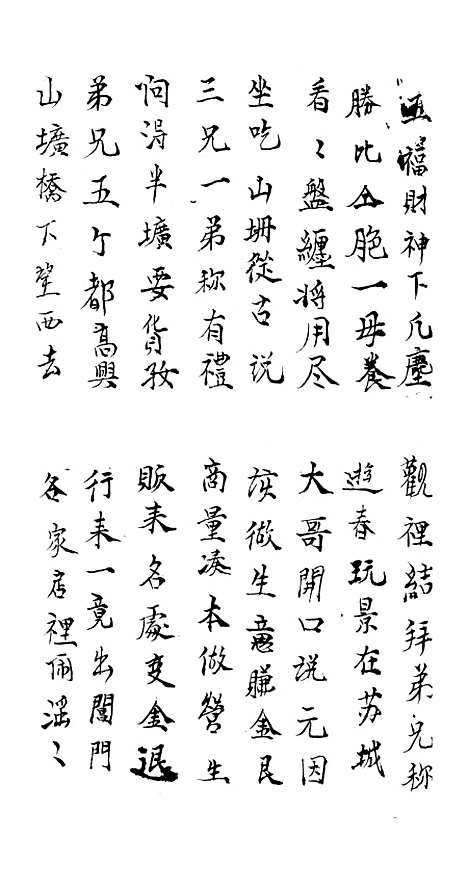 五福財神下凡塵
觀裡結拜弟兄称
勝比仝胞一母養
遊春玩景在苏城
看〻盤纏將用尽
大哥開口說元因
坐吃山珊從古説
該做生意賺金艮
三兄一弟称有禮
商量凑本做營生
淂半壙要貨
販耒名處变金退
弟兄五个都高興
行耒一竟出閶門
山壙橋下望西去
各家店裡滔〻